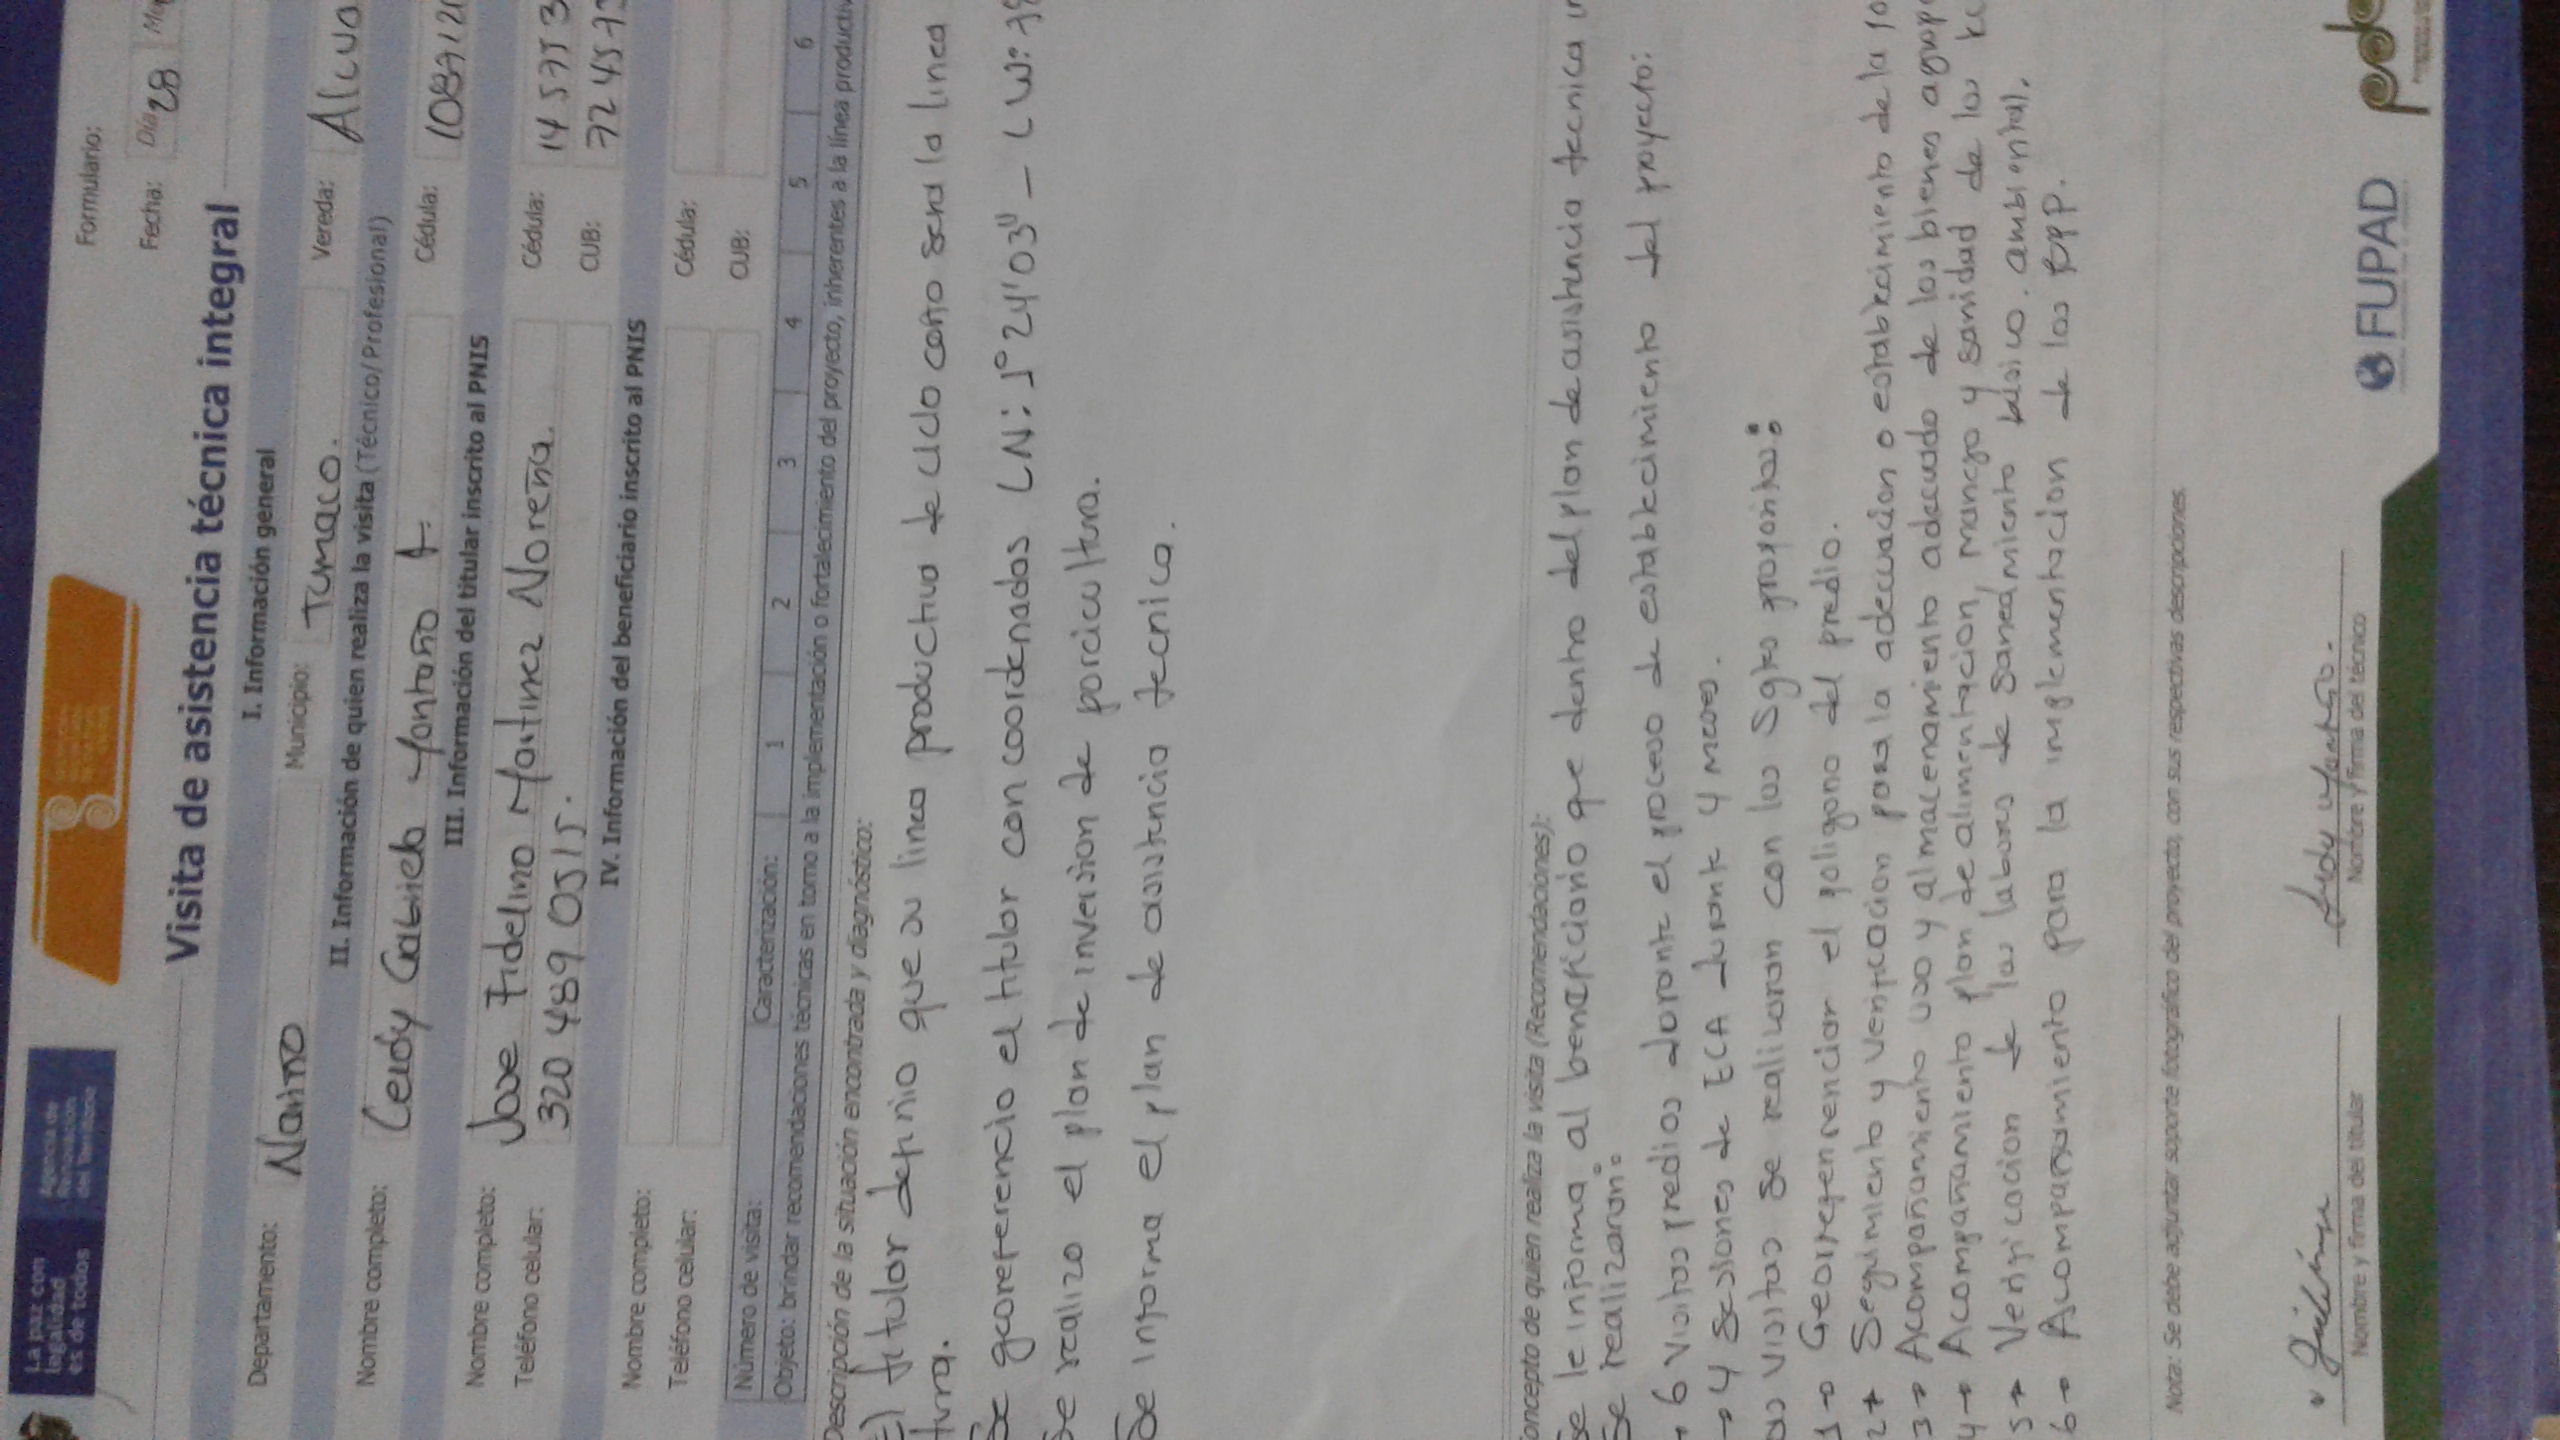 La paz con
legalidad
es de todos
Agencia de
Renovación
del Territorio
Formulario:
Fecha: Día 28
Visita de asistencia técnica integral
I. Información general
Departamento: Nariño Municipio: Tumaco. Vereda:
II. Información de quien realiza la visita (Técnico/Profesional)
Nombre completo: Leidy Gabriela Montaño A. Cédula: 1087121
III. Información del titular inscrito al PNIS
Nombre completo: Jose Fidelino Martinez Noreña. Cédula: 1457753
Teléfono celular: 320 489 0515. CUB: 724573
IV. Información del beneficiario inscrito al PNIS
Nombre completo: Cédula:
Teléfono celular: CUB:
Número de visita: Caracterización: 1 2 3 4 5 6
Objeto: brindar recomendaciones técnicas en torno a la implementación o fortalecimiento del proyecto, inherentes a la línea productiv
Descripción de la situación encontrada y diagnóstico:
El titular definio que su linea productiva de ciclo corto sera la linea
tura.
Se georeferencio el titular con coordenadas LN: 1° 24' 03" - LW: 78
Se realizo el plan de inversion de porcicultura.
Se informa el plan de asistencia tecnica.
oncepto de quien realiza la visita (Recomendaciones):
Se le informa al beneficiario que dentro del plan de asistencia tecnica
Se realizaran:
→ 6 visitas predios durante el proceso de establecimiento del proyecto:
→ 4 sesiones de ECA durante 4 meses.
as visitas se realizaran con los Sgtes propositos:
1→ Georreferenciar el poligono del predio.
2→ Seguimiento y verificacion para la adecuacion o establecimiento de la
3→ Acompañamiento uso y almacenamiento adecuado de los bienes agrope
4→ Acompañamiento plan de alimentacion, manejo y sanidad de los
5→ Verificacion de las labores de saneamiento basico. ambiental).
6→ Acompañamiento para la implementacion de las BPP.
Nota: Se debe adjuntar soporte fotográfico del proyecto, con sus respectivas descripciones.
Nombre y firma del titular
Nombre y firma del técnico
FUPAD